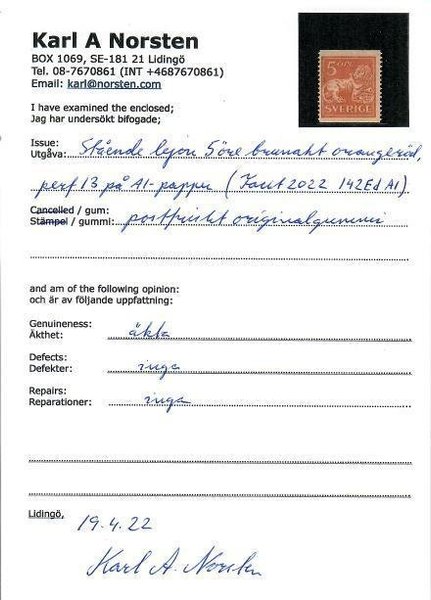 Karl A Norsten
BOX 1069, SE-181 21 Lidingö
Tel. 08-7670861 (INT +4687670861)
Email: karl@norsten.com
5 ÖRE
SVERIGE
I have examined the enclosed;
Jag har undersökt bifogade;
Issue:
Utgåva: Stående lejon 5 öre brunakt orangeröd,
perf 13 på A1-papper (Facit 2022 142Ed A1)
Cancelled / gum:
Stämpel / gummi: postfriskt originalgummi
and am of the following opinion:
och är av följande uppfattning:
Genuineness:
Äkthet: äkta
Defects:
Defekter: inga
Repairs:
Reparationer: inga
Lidingö, 19.4.22
Karl A. Norsten